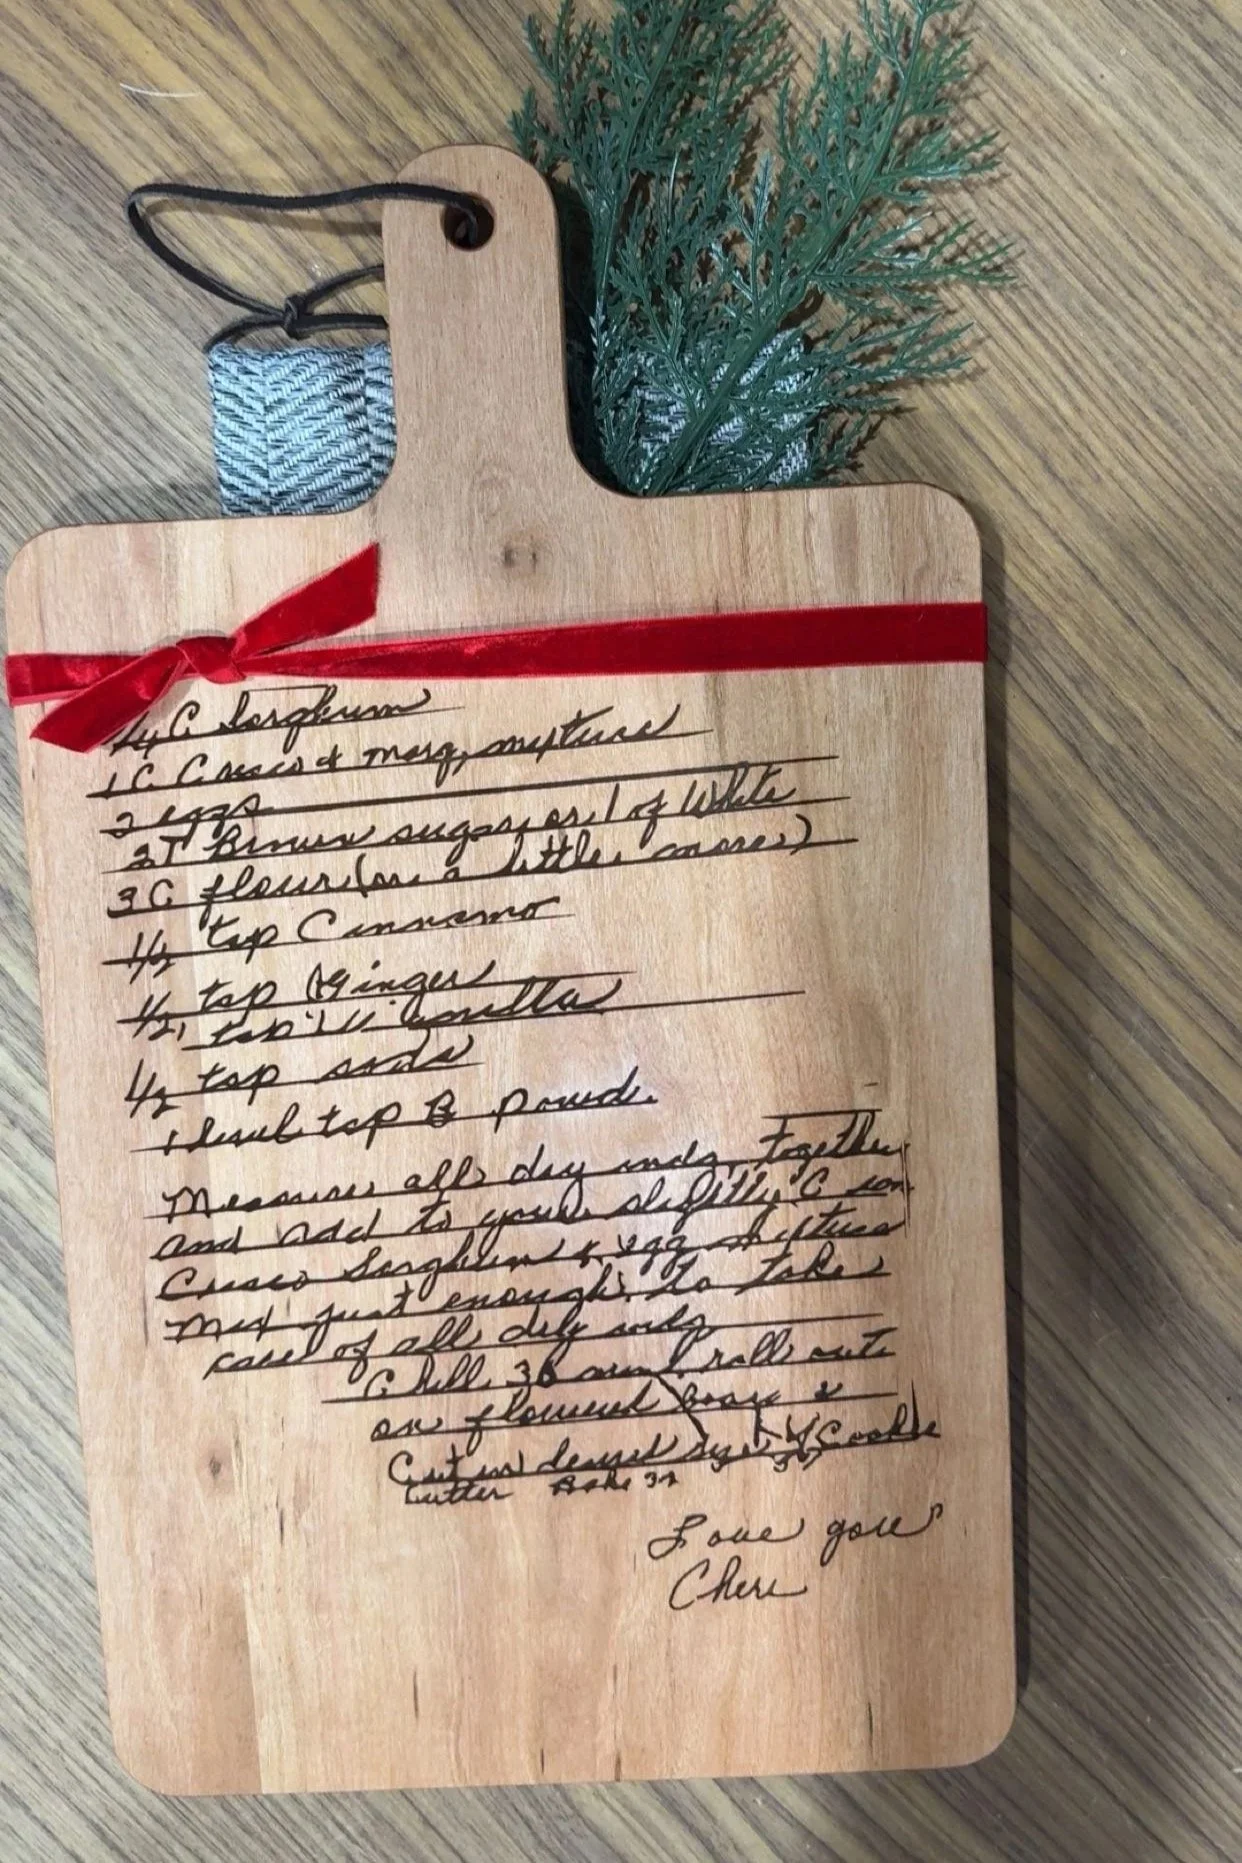 1/4 C Sorghum
1 C Crisco & marg, mixture
2 eggs
2T Brown sugar or 1 of White
3 C flour (or a little more)
1/2 tsp Cinnamo
1/2 tsp Ginger
1/2 tsp Vanilla
1/2 tsp soda
1 level tsp B powd.
Measure all dry inds, Together
and add to your slightly
Crisco Sorghum & egg mixture
Mix just enough to take
care of all dry inds
Chill 30 min roll out
on floured &
Cut in desired size Cookie
Cutter Bake
Love you
Cheri